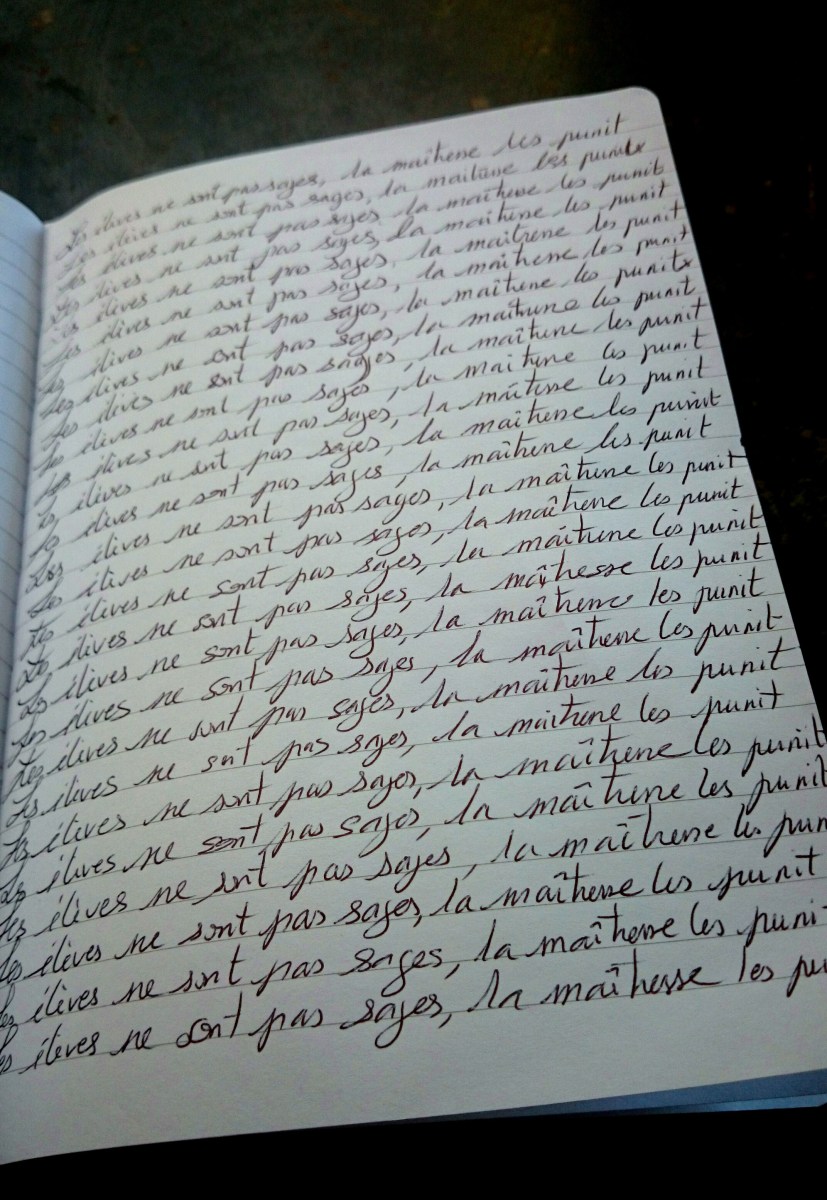 Les élèves ne sont pas sages, la maîtresse les punit
Les élèves ne sont pas sages, la maîtresse les punit
Les élèves ne sont pas sages la maîtresse les punit
Les élèves ne sont pas sages, la maîtresse les punit
Les élèves ne sont pas sages, la maîtresse les punit
Les élèves ne sont pas sages, la maîtresse les punit
Les élèves ne sont pas sages, la maîtresse les punit
Les élèves ne sont pas sages, la maîtresse les punit
Les élèves ne sont pas sages, la maîtresse les punit
Les élèves ne sont pas sages, la maîtresse les punit
Les élèves ne sont pas sages, la maîtresse les punit
Les élèves ne sont pas sages, la maîtresse les punit
Les élèves ne sont pas sages, la maîtresse les punit
Les élèves ne sont pas sages, la maîtresse les punit
Les élèves ne sont pas sages, la maîtresse les punit
Les élèves ne sont pas sages, la maîtresse les punit
Les élèves ne sont pas sages, la maîtresse les punit
Les élèves ne sont pas sages, la maîtresse les punit
Les élèves ne sont pas sages, la maîtresse les punit
Les élèves ne sont pas sages, la maîtresse les punit
Les élèves ne sont pas sages, la maîtresse les punit
Les élèves ne sont pas sages, la maîtresse les punit
Les élèves ne sont pas sages, la maîtresse les punit
Les élèves ne sont pas sages, la maîtresse les pun
Les élèves ne sont pas sages, la maîtresse les punit
Les élèves ne sont pas sages, la maîtresse les puni
es élèves ne sont pas sages, la maîtresse les pu